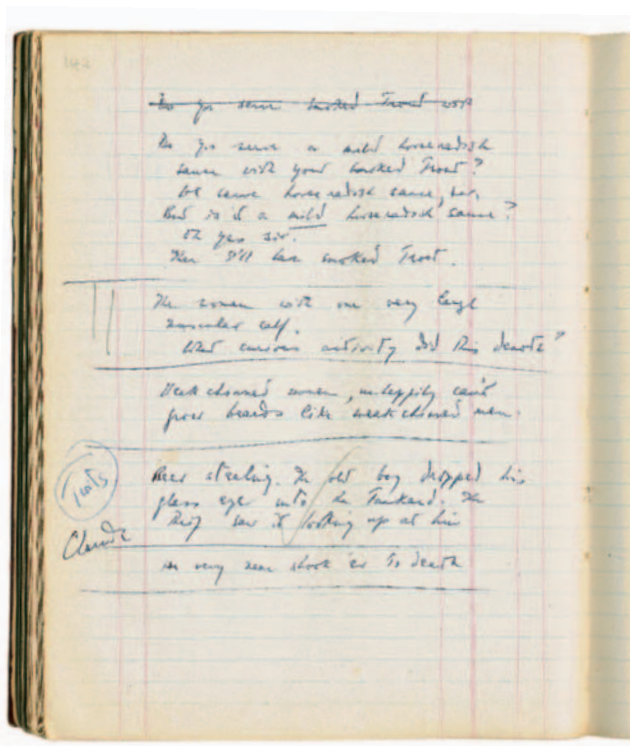 142
Do you serve smoked Trout with
Do you serve a mild horseradish
sauce with your smoked Trout?
We serve horseradish sauce, sir.
But is it a mild horseradish sauce?
Oh yes sir.
Then I'll have smoked Trout.
The woman with one very large
muscular calf.
What curious activity did this denote?
Weak chinned women, unhappily can't
grow beards like weak chinned men.
Beer stealing. The old boy dropped his
glass eye into the Tankard. The
thief saw it looking up at him
Claude
very near shook 'er to death